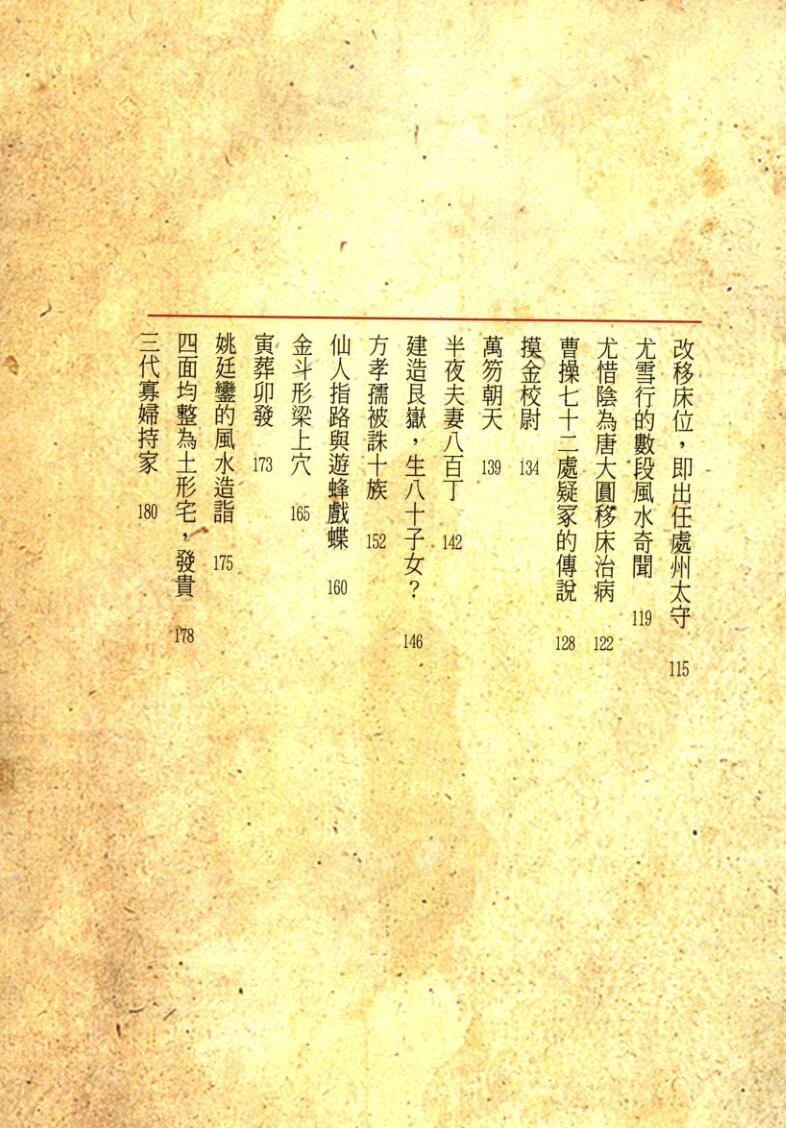 改移床位，即出任處州太守 115
尤雪行的數段風水奇聞 119
尤惜陰為唐大圓移床治病 122
曹操七十二處疑冢的傳說 128
摸金校尉 134
萬笏朝天 139
半夜夫妻八百丁 142
建造艮嶽，生八十子女？ 146
方孝孺被誅十族 152
仙人指路與遊蜂戲蝶 160
金斗形梁上穴 165
寅葬卯發 173
姚廷鑾的風水造詣 175
四面均整為土形宅，發貴 178
三代寡婦持家 180